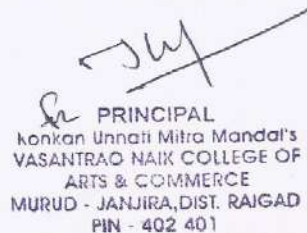 PRINCIPAL
Konkan Unnati Mitra Mandal's
VASANTRAO NAIK COLLEGE OF
ARTS & COMMERCE
MURUD - JANJIRA, DIST. RAIGAD
PIN - 402 401